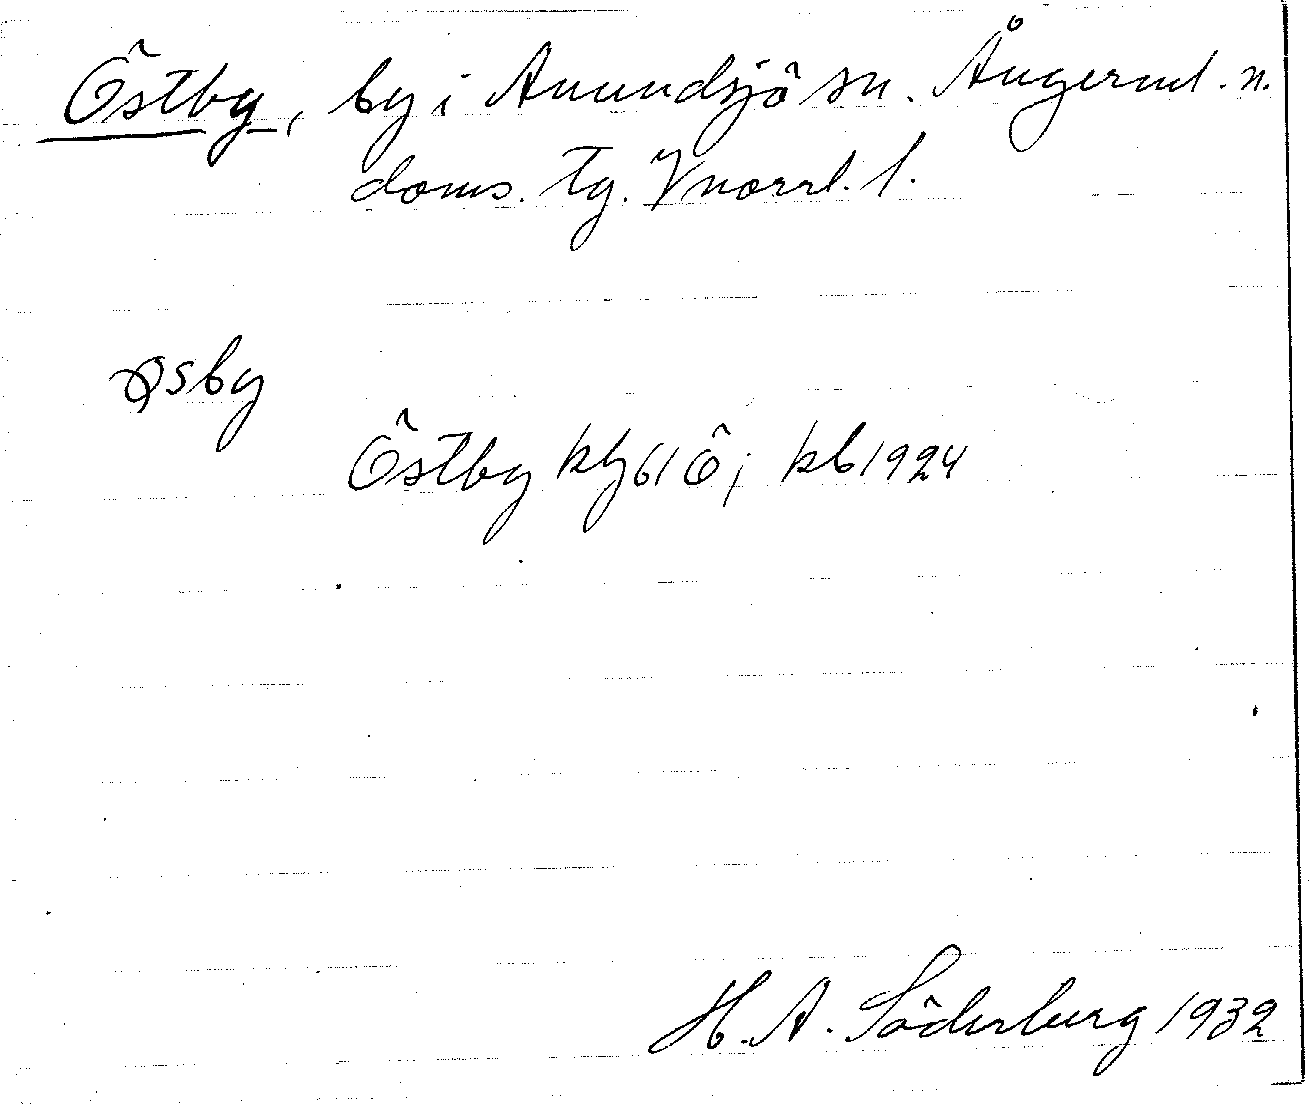 Östby, by i Anundsjö sn. Ångerml. n.
doms. tg. Vnorrl. l.
Östby kbj 61 Ö; kb 1924
H. A. Söderberg 1932